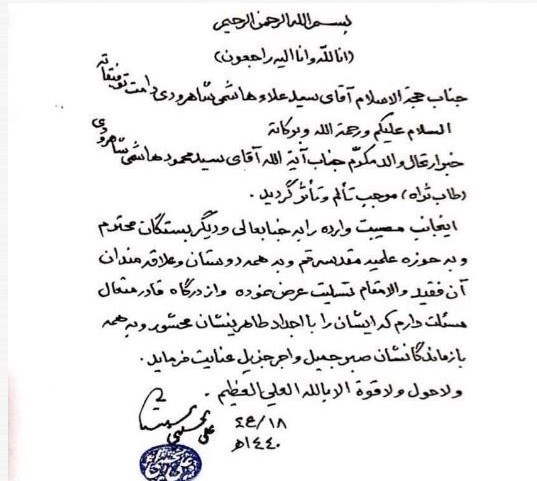 بسم الله الرحمن الرحيم
(انا لله وانا اليه راجعون)
جناب حجة الاسلام آقای سید علاء هاشمی شاهرودی دامت توفیقاته
السلام علیکم ورحمة الله وبرکاته
خبر ارتحال والد مکرّم جناب آیة الله آقای سید محمود هاشمی شاهرودی
(طاب ثراه) موجب تألم وتأثر گردید .
اینجانب مصیبت وارده را به جنابعالی و دیگر بستگان محترم
و به حوزه علمیه مقدسه قم و به همه دوستان و علاقه مندان
آن فقید والامقام تسلیت عرض نموده و از درگاه قادر متعال
مسئلت دارم که ایشان را با اجداد طاهرینشان محشور و به همه
بازماندگانشان صبر جمیل و اجر جزیل عنایت فرماید .
ولاحول ولاقوة الا بالله العلی العظیم .
١٨/ع٢
١٤٤٠هـ
علی الحسینی السیستانی